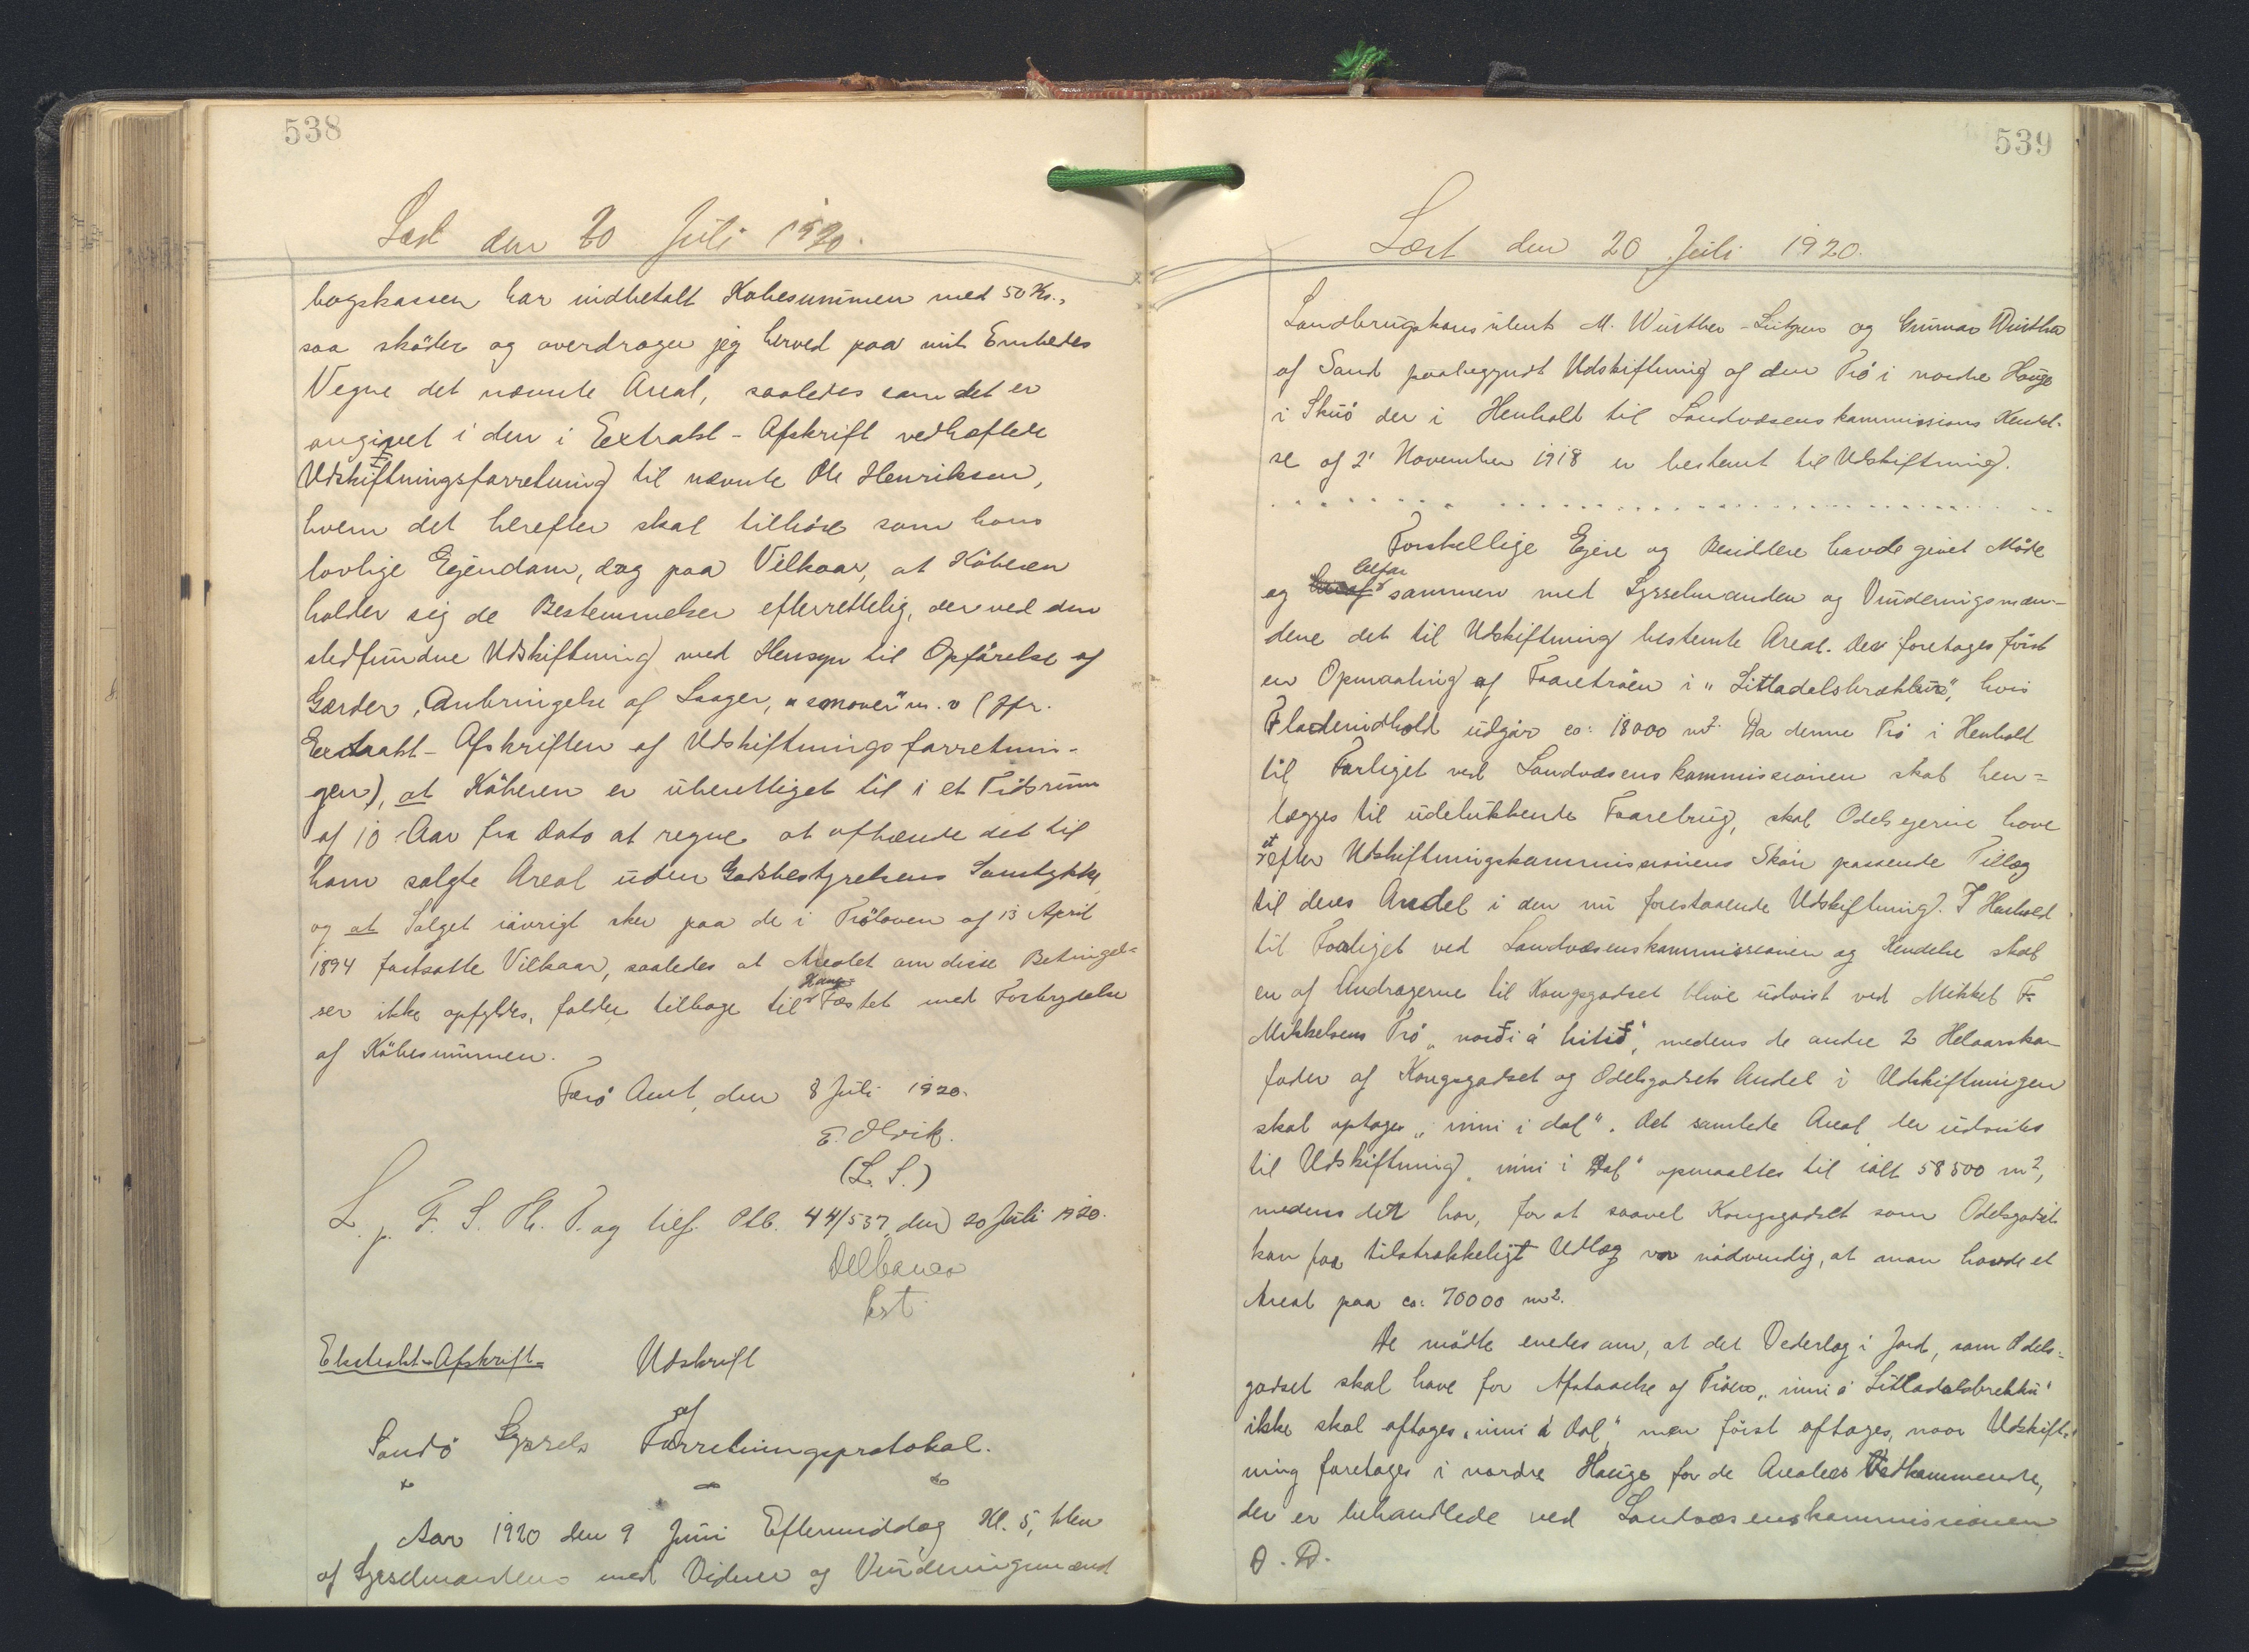 538
Læst den 20 Juli 1920.
bogskassen har indbetalt Købesummen med 50 Kr.,
saa skøder og overdrager jeg herved paa mit Embedes
Vegne det nævnte Areal, saaledes som det er
angivet i den i Extrakt-Afskrift vedhæftede
Udskiftningsforretning til nævnte Ole Henriksen,
hvem det herefter skal tilhøre som hans
lovlige Ejendom, dog paa Vilkaar, at Køberen
holder sig de Bestemmelser efterrettelig, der ved den
stedfundne Udskiftning med Hensyn til Opførelse af
Gærder, Anbringelse af Laager, "smover" m. v (jfr.
Extrakt-Afskriften af Udskiftningsforretnin-
gen), at Køberen er uberettiget til i et Tidsrum
af 10 Aar fra Dato at regne at afhænde det til
ham solgte Areal uden Godsbestyrelsens Samtykke
og at Salget iøvrigt sker paa de i Trøloven af 13 April
1894 fastsatte Vilkaar, saaledes at Arealet om disse Betingel-
ser ikke opfyldes, falder tilbage til Kongs Fæstet med Fortrydelse
af Købesummen.
Færø Amt, den 8 Juli 1920.
(L. S.)
L. p. F. S. Th. P. og tilf. Ptb. 44/537, den 20 Juli 1920.
Delbanco
kst.
Ekstrakt-Afskrift. Udskrift
af
Sandø Syssels Forretningsprotokol.
Aar 1920 den 9 Juni Eftermiddag Kl. 5, blev
af Sysselmanden med Vidner og Vurderingsmænd
539
Læst den 20 Juli 1920.
Landbrugskonsulent M. Winther-Lützen og Gunnar Winther
af Sand paabegyndt Udskiftning af den Trø i nordre Hauge
i Skuø der i Henhold til Landvæsenskommissions Kendel-
se af 2' November 1918 er bestemt til Udskiftning.
Forskellige Ejere og Besiddere havde givet Møde
og befor sammen med Sysselmanden og Vurderingsmæn-
dene det til Udskiftning bestemte Areal. Der foretages først
en Opmaaling af Faaretrøen i "Litladalsbrekku", hvis
Fladeindhold udgør ca: 18000 m². Da denne Trø i Henhold
til Forliget ved Landvæsenskommissionen skal hen-
lægges til udelukkende Faarebrug, skal Odelsejerne have
et efter Udskiftningskommissionens Skøn passende Tillæg
til deres Andel i den nu forestaaende Udskiftning. I Henhold
til Forliget ved Landvæsenskommissionen og Kendelse skal
en af Andragerne til Kongsgodset blive udvist ved Mikkel F.
Mikkelsens Trø "norði á", medens de andre 2 Helaarska-
foder af Kongsgodset og Odelsgodsets Andel i Udskiftningen
skal optages "inni i dal". Det samlede Areal der udvistes
til Udskiftning "inni i Dal" opmaaltes til ialt 58500 m²,
medens det har, for at saavel Kongsgodset som Odelsgodset
kan faa tilstrækkeligt Udlæg var nødvendig, at man havde et
Areal paa ca: 70000 m².
De mødte enedes om, at det Vederlag i Jord, som Odels-
godset skal have for Afstaaelse af Trøen "inni á Litladalsbrekku"
ikke skal aftages "inni á Dal", men først aftages, naar Udskift-
ning foretages i nordre Hauge for de Arealers Vedkommende,
der er behandlede ved Landvæsenskommissionen
D. D.